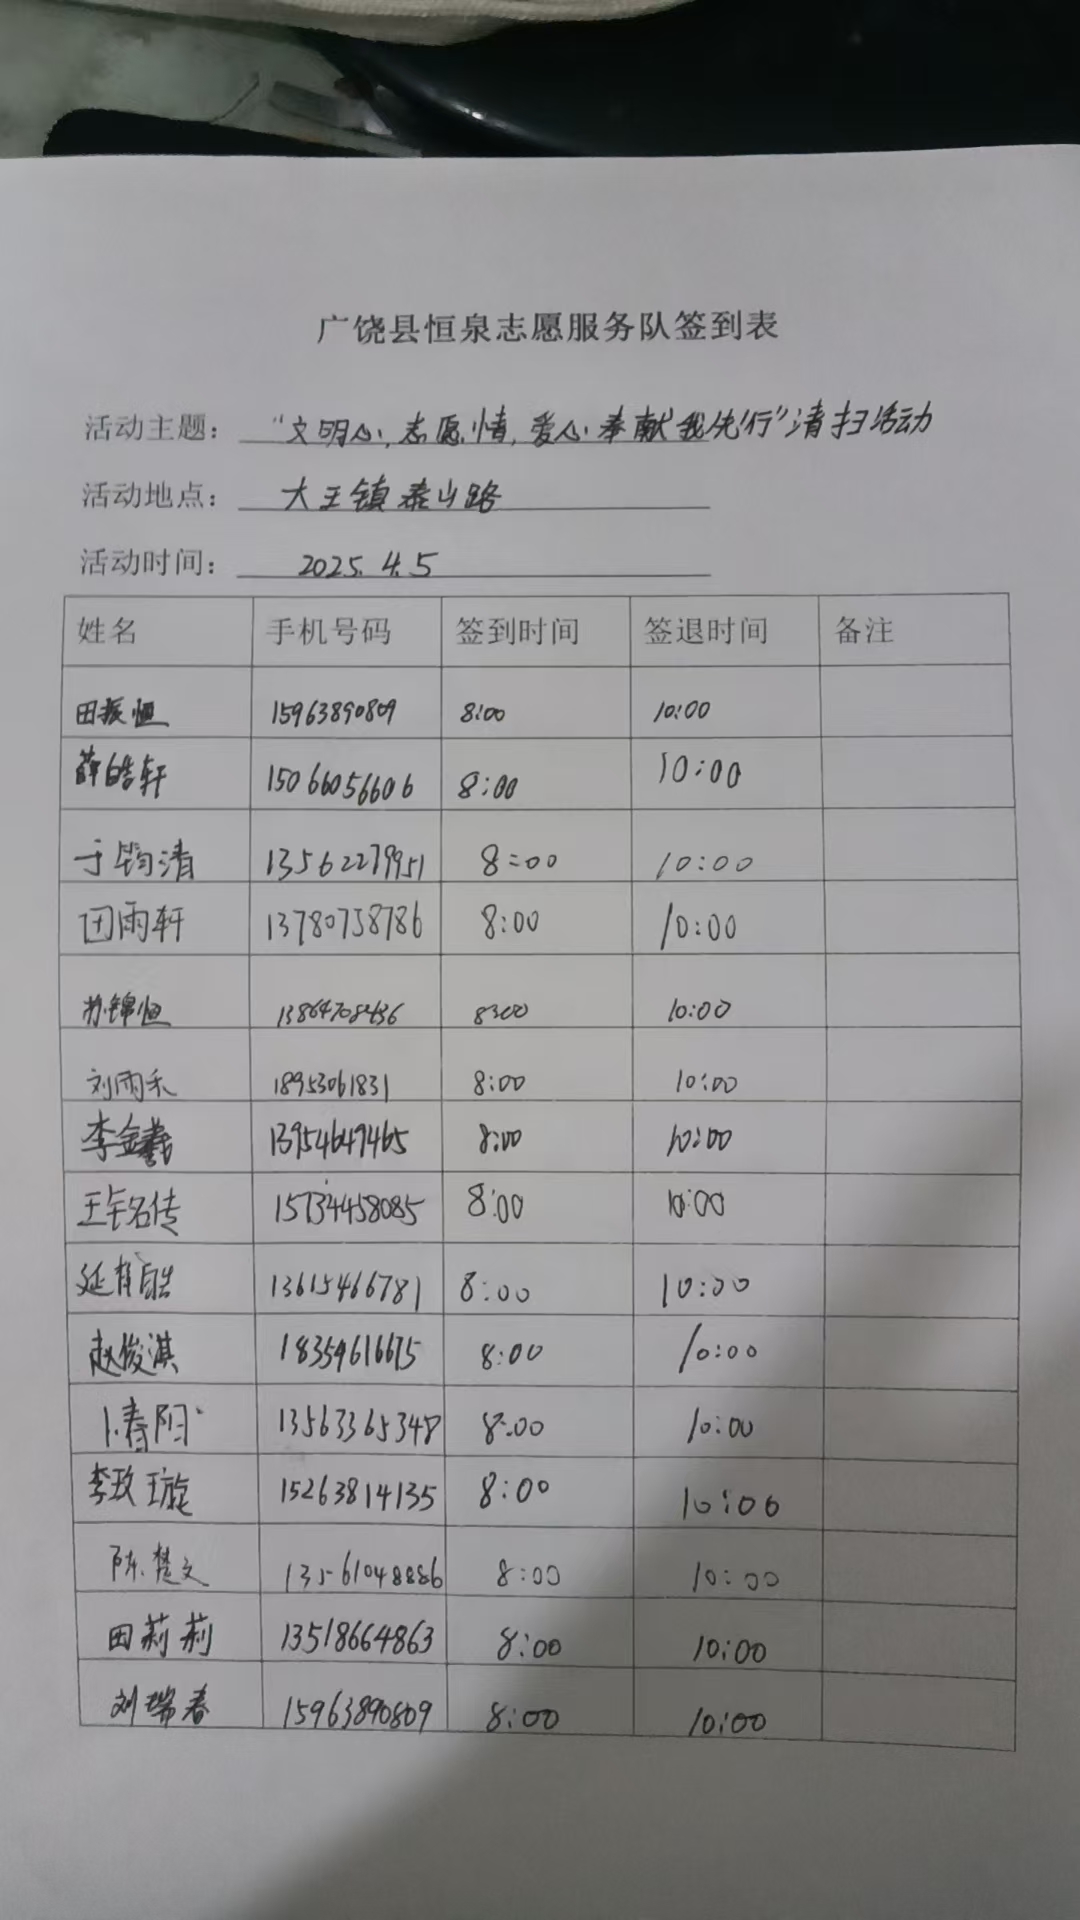 广饶县恒泉志愿服务队签到表
活动主题： "文明心,志愿情,爱心奉献我先行"清扫活动
活动地点： 大王镇泰山路
活动时间： 2025.4.5
姓名 手机号码 签到时间 签退时间 备注
田振恒 15963890809 8:00 10:00
薛皓轩 15066056606 8:00 10:00
于筠清 13562279951 8:00 10:00
田雨轩 13780758786 8:00 10:00
苏锦恒 13864708436 8:00 10:00
刘雨禾 18953061831 8:00 10:00
李金 13954649465 8:00 10:00
15734458085 8:00 10:00
13615466781 8:00 10:00
赵俊淇 18354616675 8:00 10:00
卜春阳 13563365348 8:00 10:00
李玟璇 15263814135 8:00 10:00
陈楚文 13561048886 8:00 10:00
田莉莉 13518664863 8:00 10:00
刘瑞春 15963890809 8:00 10:00